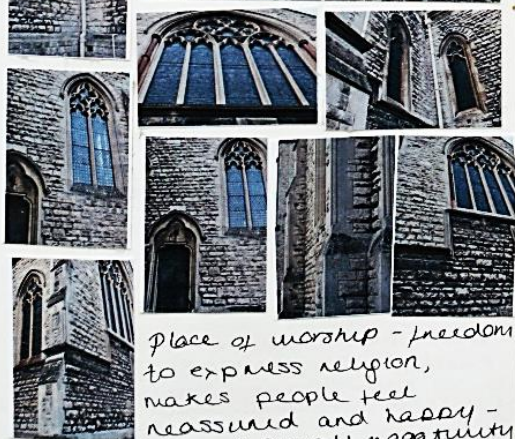 Place of worship - freedom
to express religion,
makes people feel
reassured and happy -
opportunity